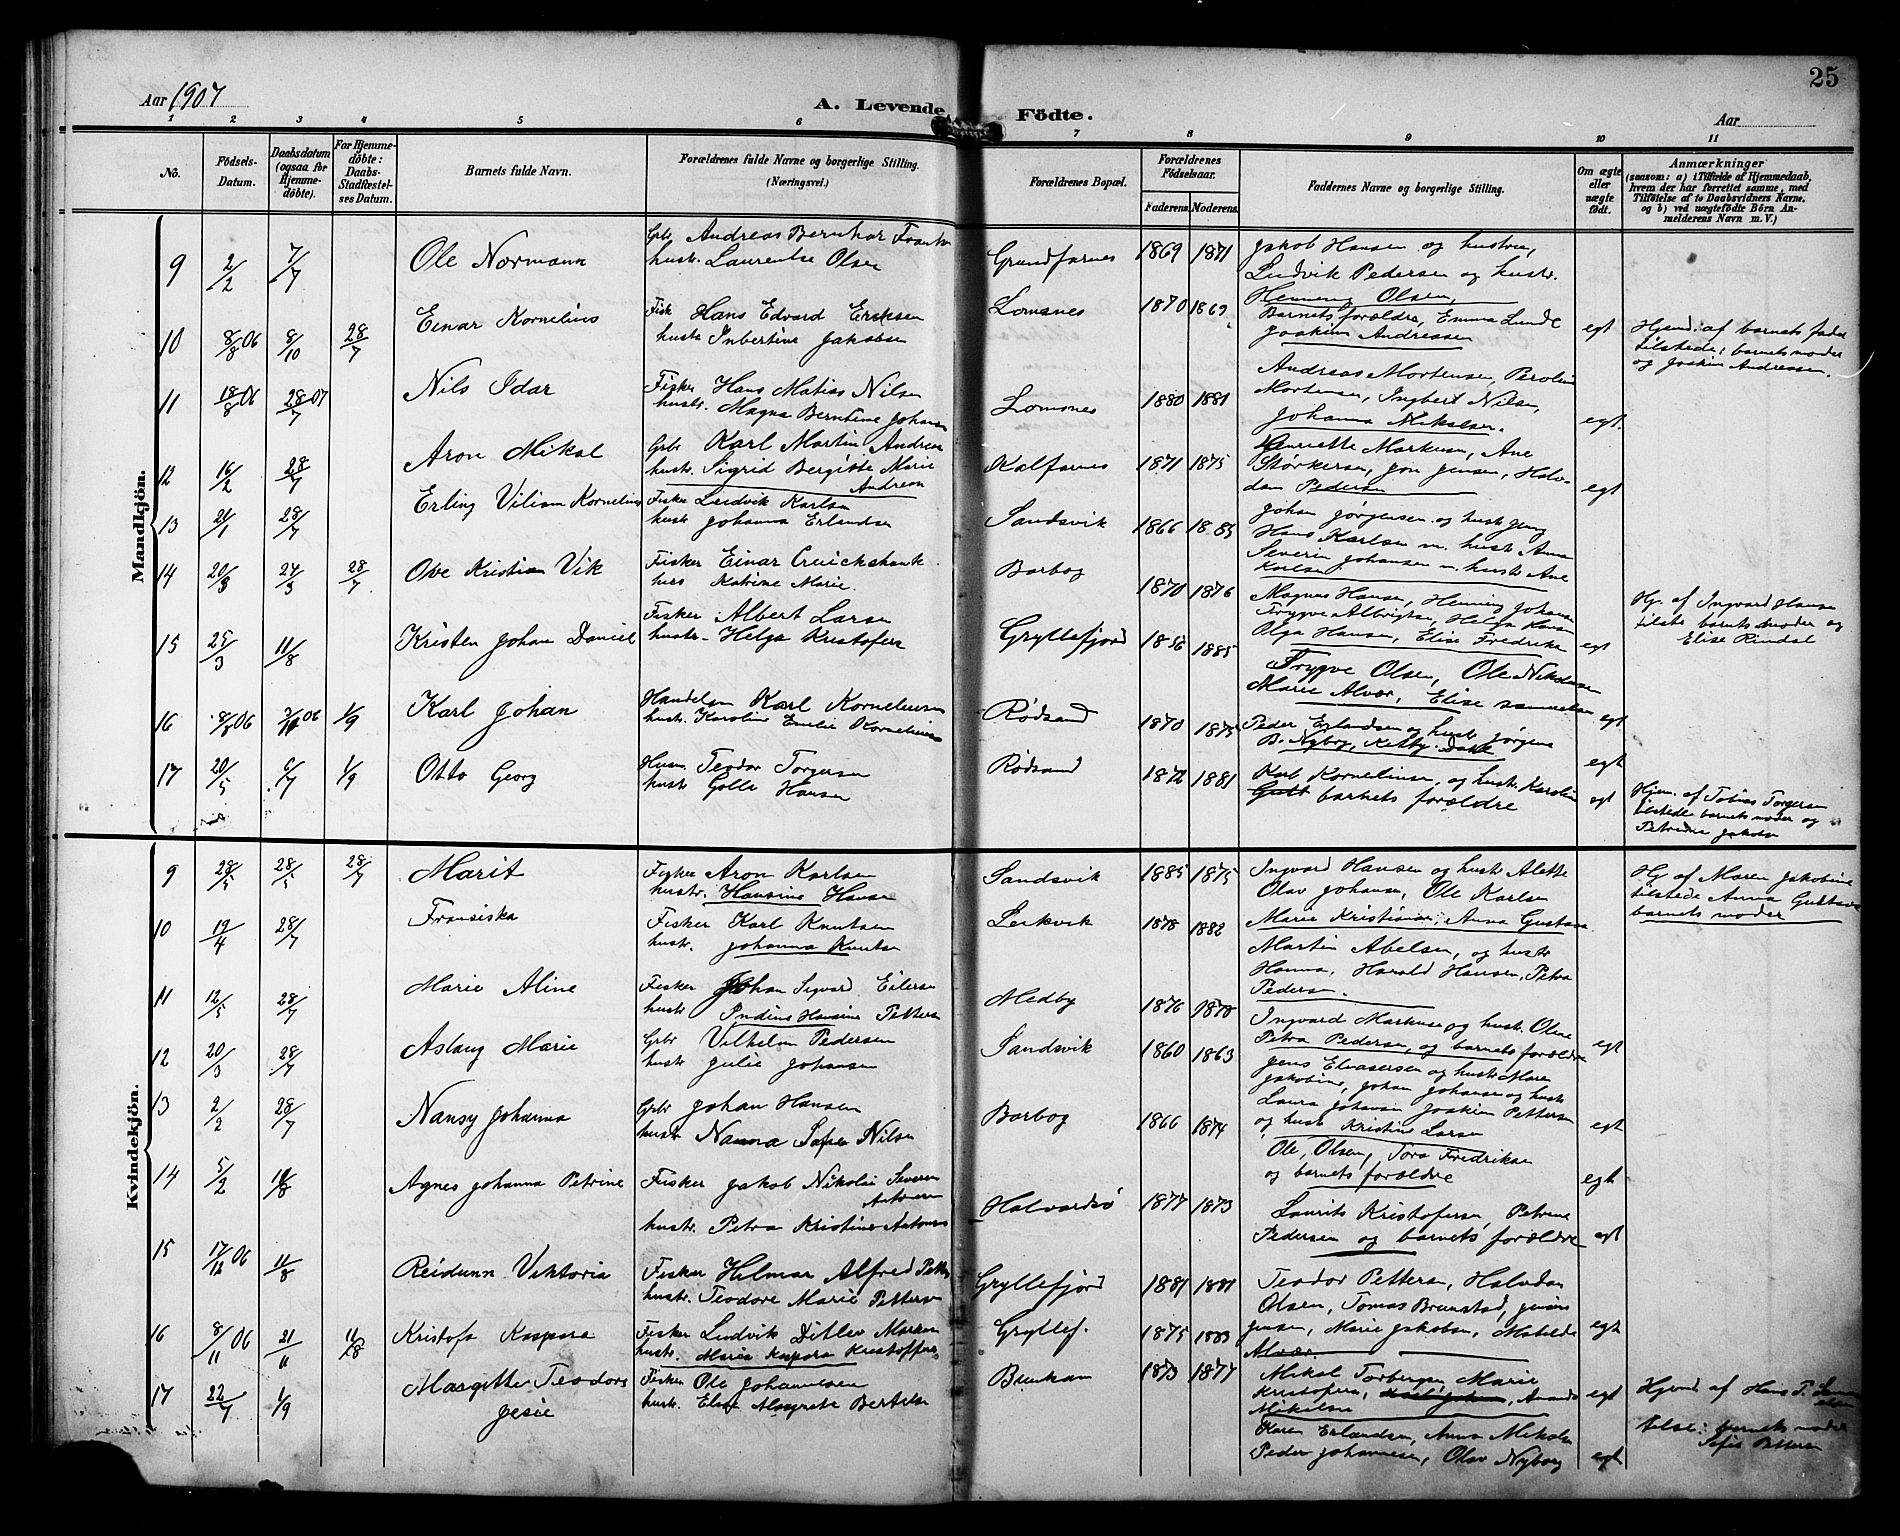 25
Aar 1907
A. Levende Födte.
Aar
1 2 3 4 5 6 7 8 9 10 11
No.
Födsels-Datum.
Daabsdatum (ogsaa for Hjemmedöbte).
For Hjemmedöbte: Daabs-Stadfæstelses Datum.
Barnets fulde Navn.
Forældrenes fulde Navne og borgerlige Stilling.
(Næringsvei.)
Forældrenes Bopæl.
Forældrenes Födselsaar.
Faderens. Moderens.
Faddernes Navne og borgerlige Stilling.
Om ægte eller uægte födt.
Anmærkninger
(saasom: a) i Tilfælde af Hjemmedaab, hvem der har forrettet samme, med Tilföielse af to Daabsvidners Navne, og b) ved uægtefödte Börn Anmelderens Navn m. V.)
Mandkjön.
9 2/2 7/7 Ole Normann
Grb Andreas Bernhar
hustr Laurentse Olsen
Grundfarnes 1869 1871
Jakob Hansen og hustru,
Ludvik Pedersen og hustr.
Henning Olsen,
10 8/8 06 8/10 28/7 Einar Kornelius
Fisk Hans Edvard Eriksen
hustr Inbertine Jakobsen
Lomsnes 1870 1869
Barnets forældre, Emma Lunde
Joakim Andreasen
egt
Hjemd. af barnets fader
tilstede: barnets moder
og Joakim Andreasen.
11 18/8 06 28/7 07 Nils Idar
Fisker Hans Matias Nilsen
hustr. Magna Berntine Johansen
Lomsnes 1880 1881
Andreas Mortensen, Peroline
Mortensen, Ingbert Nilsen,
Johanna Mikalsen.
egt.
12 16/2 28/7 Aron Mikal
Grbr Karl Martin Andreas
hustr. Sigrid Bergitte Marie
Andreasn
Kalfarnes 1871 1875
Henriette Markusen, Ane
Størkersen, Jon Jensen, Halv-
dan Pedersen
egt
13 21/1 28/7 Erling Viliam Kornelius
Fisker Ludvik Karlsen
hustr Johanna Erlandsen
Sandsvik 1866 1885
Johan Jørgensen og hustr Jeng
Hans Karlsen m. hustr Anna
Severin Johansen m. hustr Ane
Karlsen
14 20/3 24/3 28/7 Ove Kristian Vik
Fisker Einar Cruickshank
hus Katrine Marie.
Barbog 1870 1876
Magnus Hansen, Henning Johansen
Trygve Albrigtsen, Helga Hansen
Olga Hansen, Elise Fredriksen
egt
Hj. af Ingvard Hansen
tilste barnets moder og
Elise Rindal
15 25/3 11/8 Kristen Johan Daniel
Fisker Albert Larsen
hustr. Helga Kristofers
Gryllefjord 1856 1885
Trygve Olsen, Ole Nikolaisen
Marie Alvær, Elise Samuelsen
egt
16 8/8 06 06 1/9 Karl Johan
Handelsm Karl Kornelius
hustr. Karoline Emelie Kornelius
Rødsand 1870 1875
Peder Erlandsen og hustr Jørgine
B. Nyborg, Ketty Dakk
egt
17 20/5 6/7 1/9 Otto Georg
Husm. Teodor Torgersen
hustr Golla Hansen
Rødsand 1872 1881
Karl Kornelinsen, og hustr. Karoline
barnets forældre
egt
Hjem. af Tobias Torgersen
tilstede barnets moder og
Petrine Jakobsen
Kvindekjön.
9 28/5 28/5 28/7 Marit
Fisker Aron Karlsen
hustr. Hansine Hansen
Sandsvik 1885 1875
Ingvard Hansen og hustr Alette
Olav Johansen, Ole Karlsen
Hj af Maren Jakobine
tilstede Anna Gustava
barnets moder
10 19/4 28/7 Fransiska
Fisker Karl Knutsen
hustr. Johanna Knutsen
Leikvik 1878 1882
Marie Kristiansen, Anna Gustava
Martin Abelsen, og hustr
Hanna, Harald Hansen, Petra
Pedersen.
11 12/5 28/7 Marie Aline
Fisker Johan Sigvard Eilersen
hustr Indine Hansine Pettersen
Medby 1876 1878
Ingvard Markusen og hustr. Oline
Petra Pedersen, og barnets forældre
egt
12 20/3 28/7 Aslaug Marie
Grbr Vilhelm Pedersen
hustr Julie Johansen
Sandsvik 1860 1863
Jens Elvasersen og hustr Maren
Jakobine, Johan Johansen og hustr
Laura Johansen Joakim Pettersen
og hustr Kristine Larsen
egt
13 2/2 28/7 Nansy Johanna
Grbr Johan Hansen
hustr Nanna Sofie Nilsen
Barbog 1866 1874
Ole Olsen, Tora Fredriksen
og barnets forældre
egt
14 5/2 11/8 Agnes Johanna Petrine
Fisker Jakob Nikolai Severin
Antonsen
hustr. Petra Kristine Antonsen
Halvardsø 1877 1873
Laurits Kristofersen, Petrine
Pedersen og barnets forældre
egt
15 17/12 06 11/8 Reidunn Viktoria
Fisker Hilmar Alfred Petters
hustr. Teodore Marie Pettersen
Gryllefjord 1881 1881
Teodor Pettersen, Halvdan
Olsen, Tomas Brunstad, Janine
Jensen, Marie Jakobsen, Matilde
Alvær.
egt
16 8/11 06 21/11 11/8 Kristofa Kaspara
Fisker Ludvik Ditlev Markusen
hustr. Maria Kaspara Kristoffersen
Gryllef. 1875 1883
Mikal Torbergsen, Marie
Kristofersen, Amanda
Mikalsen
egt
Hjemd af Hans P.
tilst: barnets moder
Sofie Pettersen
17 22/7 1/9 Margitte Teodora
Jesie
Fisker Ole Johannesen
hustr. Elise Margrete Bertelsen
Bunkan 1873 1877
Karen Erlandsen, Anna Mikalsen
Peder Johannesen, Olav Nyborg
egt